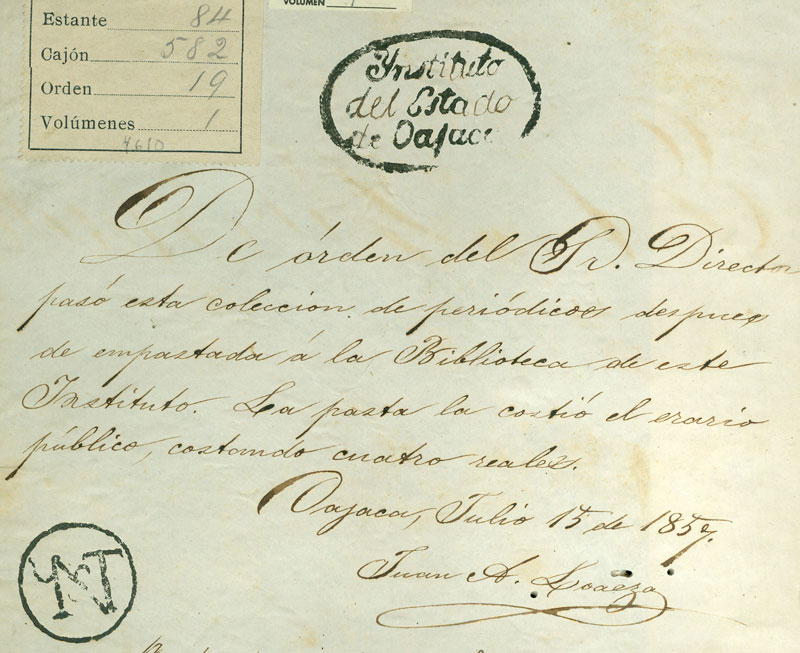 VOLUMEN
Estante 84
Cajón 582
Orden 19
Volúmenes 1
4610
Ynstituto
del Estado
de Oajaca
De órden del Sr. Director
pasó esta coleccion de periódicos despues
de empastada á la Biblioteca de este
Instituto. La pasta la costió el erario
público, costando cuatro reales.
Oajaca, Julio 15 de 1857.
Juan A. Loaeza